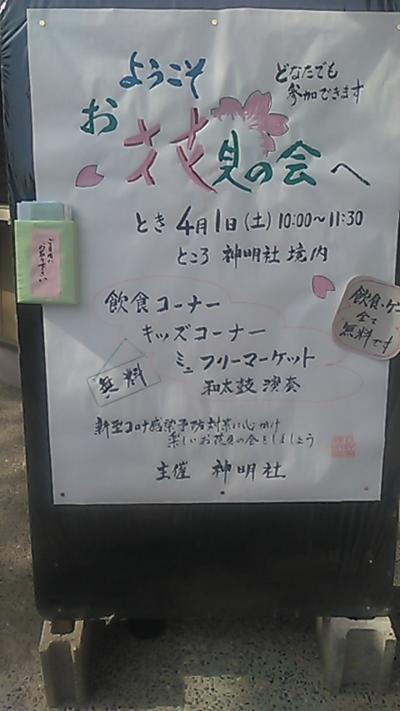 ようこそ
どなたでも
参加できます
お花見の会へ
とき 4月1日(土) 10:00～11:30
ところ 神明社 境内
ご自由に
お取り下さい
飲食コーナー
キッズコーナー
ミニフリーマーケット
和太鼓 演奏
無料
飲食・ゲー
全て
無料です
新型コロナ感染予防対策に心がけ
楽しいお花見の会をしましょう
主催 神明社